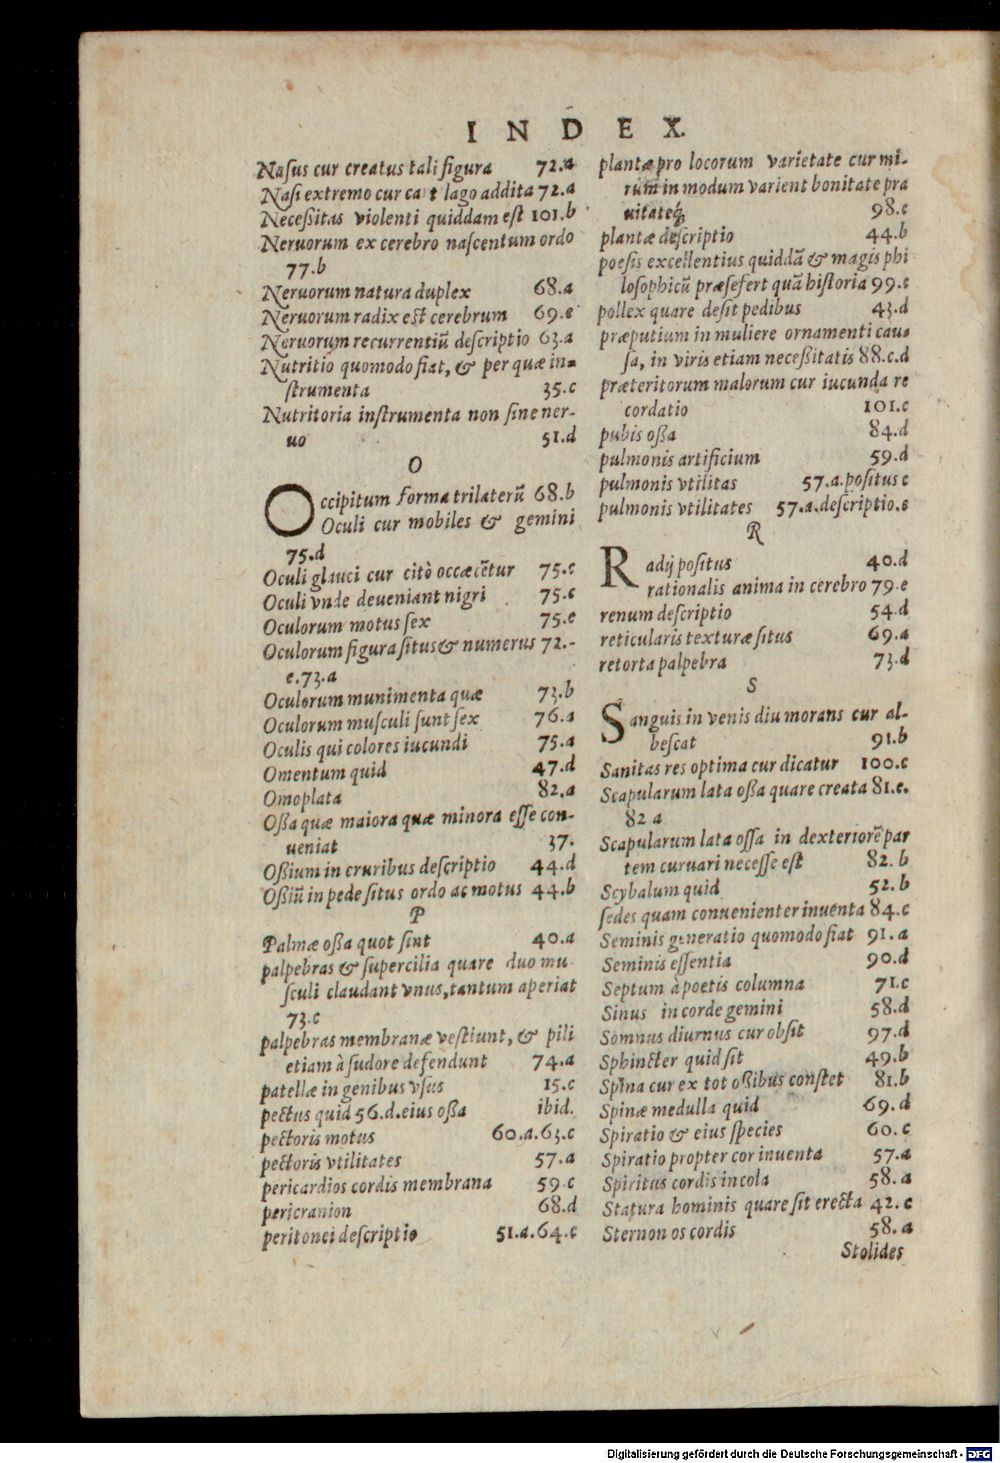 INDEX.
Naſus cur creatus tali figura 72.a
Naſi extremo cur cartilago addita 72.a
Neceßitas violenti quiddam eſt 101.b
Neruorum ex cerebro naſcentum ordo
77.b
Neruorum natura duplex 68.a
Neruorum radix eſt cerebrum 69.e
Neruorum recurrentiũ deſcriptio 63.a
Nutritio quomodo fiat, & per quæ in-
ſtrumenta 35.c
Nutritoria inſtrumenta non ſine ner-
uo 51.d
O
Occipitum forma trilaterũ 68.b
Oculi cur mobiles & gemini
75.d
Oculi glauci cur citò occæcẽtur 75.c
Oculi vnde deueniant nigri 75.c
Oculorum motus ſex 75.e
Oculorum figura ſitus & numerus 72.-
e.73.a
Oculorum munimenta quæ 73.b
Oculorum muſculi ſunt ſex 76.a
Oculis qui colores iucundi 75.a
Omentum quid 47.d
Omoplata 82.a
Oßa quæ maiora quæ minora eſſe con-
ueniat 37.
Oßium in cruribus deſcriptio 44.d
Oßiũ in pede ſitus ordo ac motus 44.b
P
Palmæ oßa quot ſint 40.a
palpebras & ſupercilia quare duo mu
ſculi claudant vnus, tantum aperiat
73.c
palpebras membranæ veſtiunt, & pili
etiam à ſudore defendunt 74.a
patellæ in genibus vſus 15.c
pectus quid 56.d.eius oßa ibid.
pectoris motus 60.a.63.c
pectoris vtilitates 57.a
pericardios cordis membrana 59.c
pericranion 68.d
peritonei deſcriptio 51.a.64.c
plantæ pro locorum varietate cur mi-
rum in modum varient bonitate pra
uitateq́; 98.c
plantæ deſcriptio 44.b
poeſis excellentius quiddã & magis phi
loſophicũ præſefert quã hiſtoria 99.e
pollex quare deſit pedibus 43.d
præputium in muliere ornamenti cau-
ſa, in viris etiam neceßitatis 88.c.d
præteritorum malorum cur iucunda re
cordatio 101.c
pubis oßa 84.d
pulmonis artificium 59.d
pulmonis vtilitas 57.a.poſitus c
pulmonis vtilitates 57.a.deſcriptio.e
R
Radij poſitus 40.d
rationalis anima in cerebro 79.e
renum deſcriptio 54.d
reticularis texturæ ſitus 69.a
retorta palpebra 73.d
S
Sanguis in venis diu morans cur al-
beſcat 91.b
Sanitas res optima cur dicatur 100.c
Scapularum lata oßa quare creata 81.e.
82 a
Scapularum lata oſſa in dexteriorẽ par
tem curuari neceſſe eſt 82.b
Scybalum quid 52.b
ſedes quam conuenienter inuenta 84.c
Seminis generatio quomodo fiat 91.a
Seminis eſſentia 90.d
Septum à poetis columna 71.c
Sinus in corde gemini 58.d
Somnus diurnus cur obſit 97.d
Sphincter quid ſit 49.b
Spina cur ex tot oßibus conſtet 81.b
Spinæ medulla quid 69.d
Spiratio & eius ſpecies 60.c
Spiratio propter cor inuenta 57.a
Spiritus cordis incola 58.a
Statura hominis quare ſit erecta 42.c
Sternon os cordis 58.a
Stolides
Digitalisierung gefördert durch die Deutsche Forschungsgemeinschaft - DFG